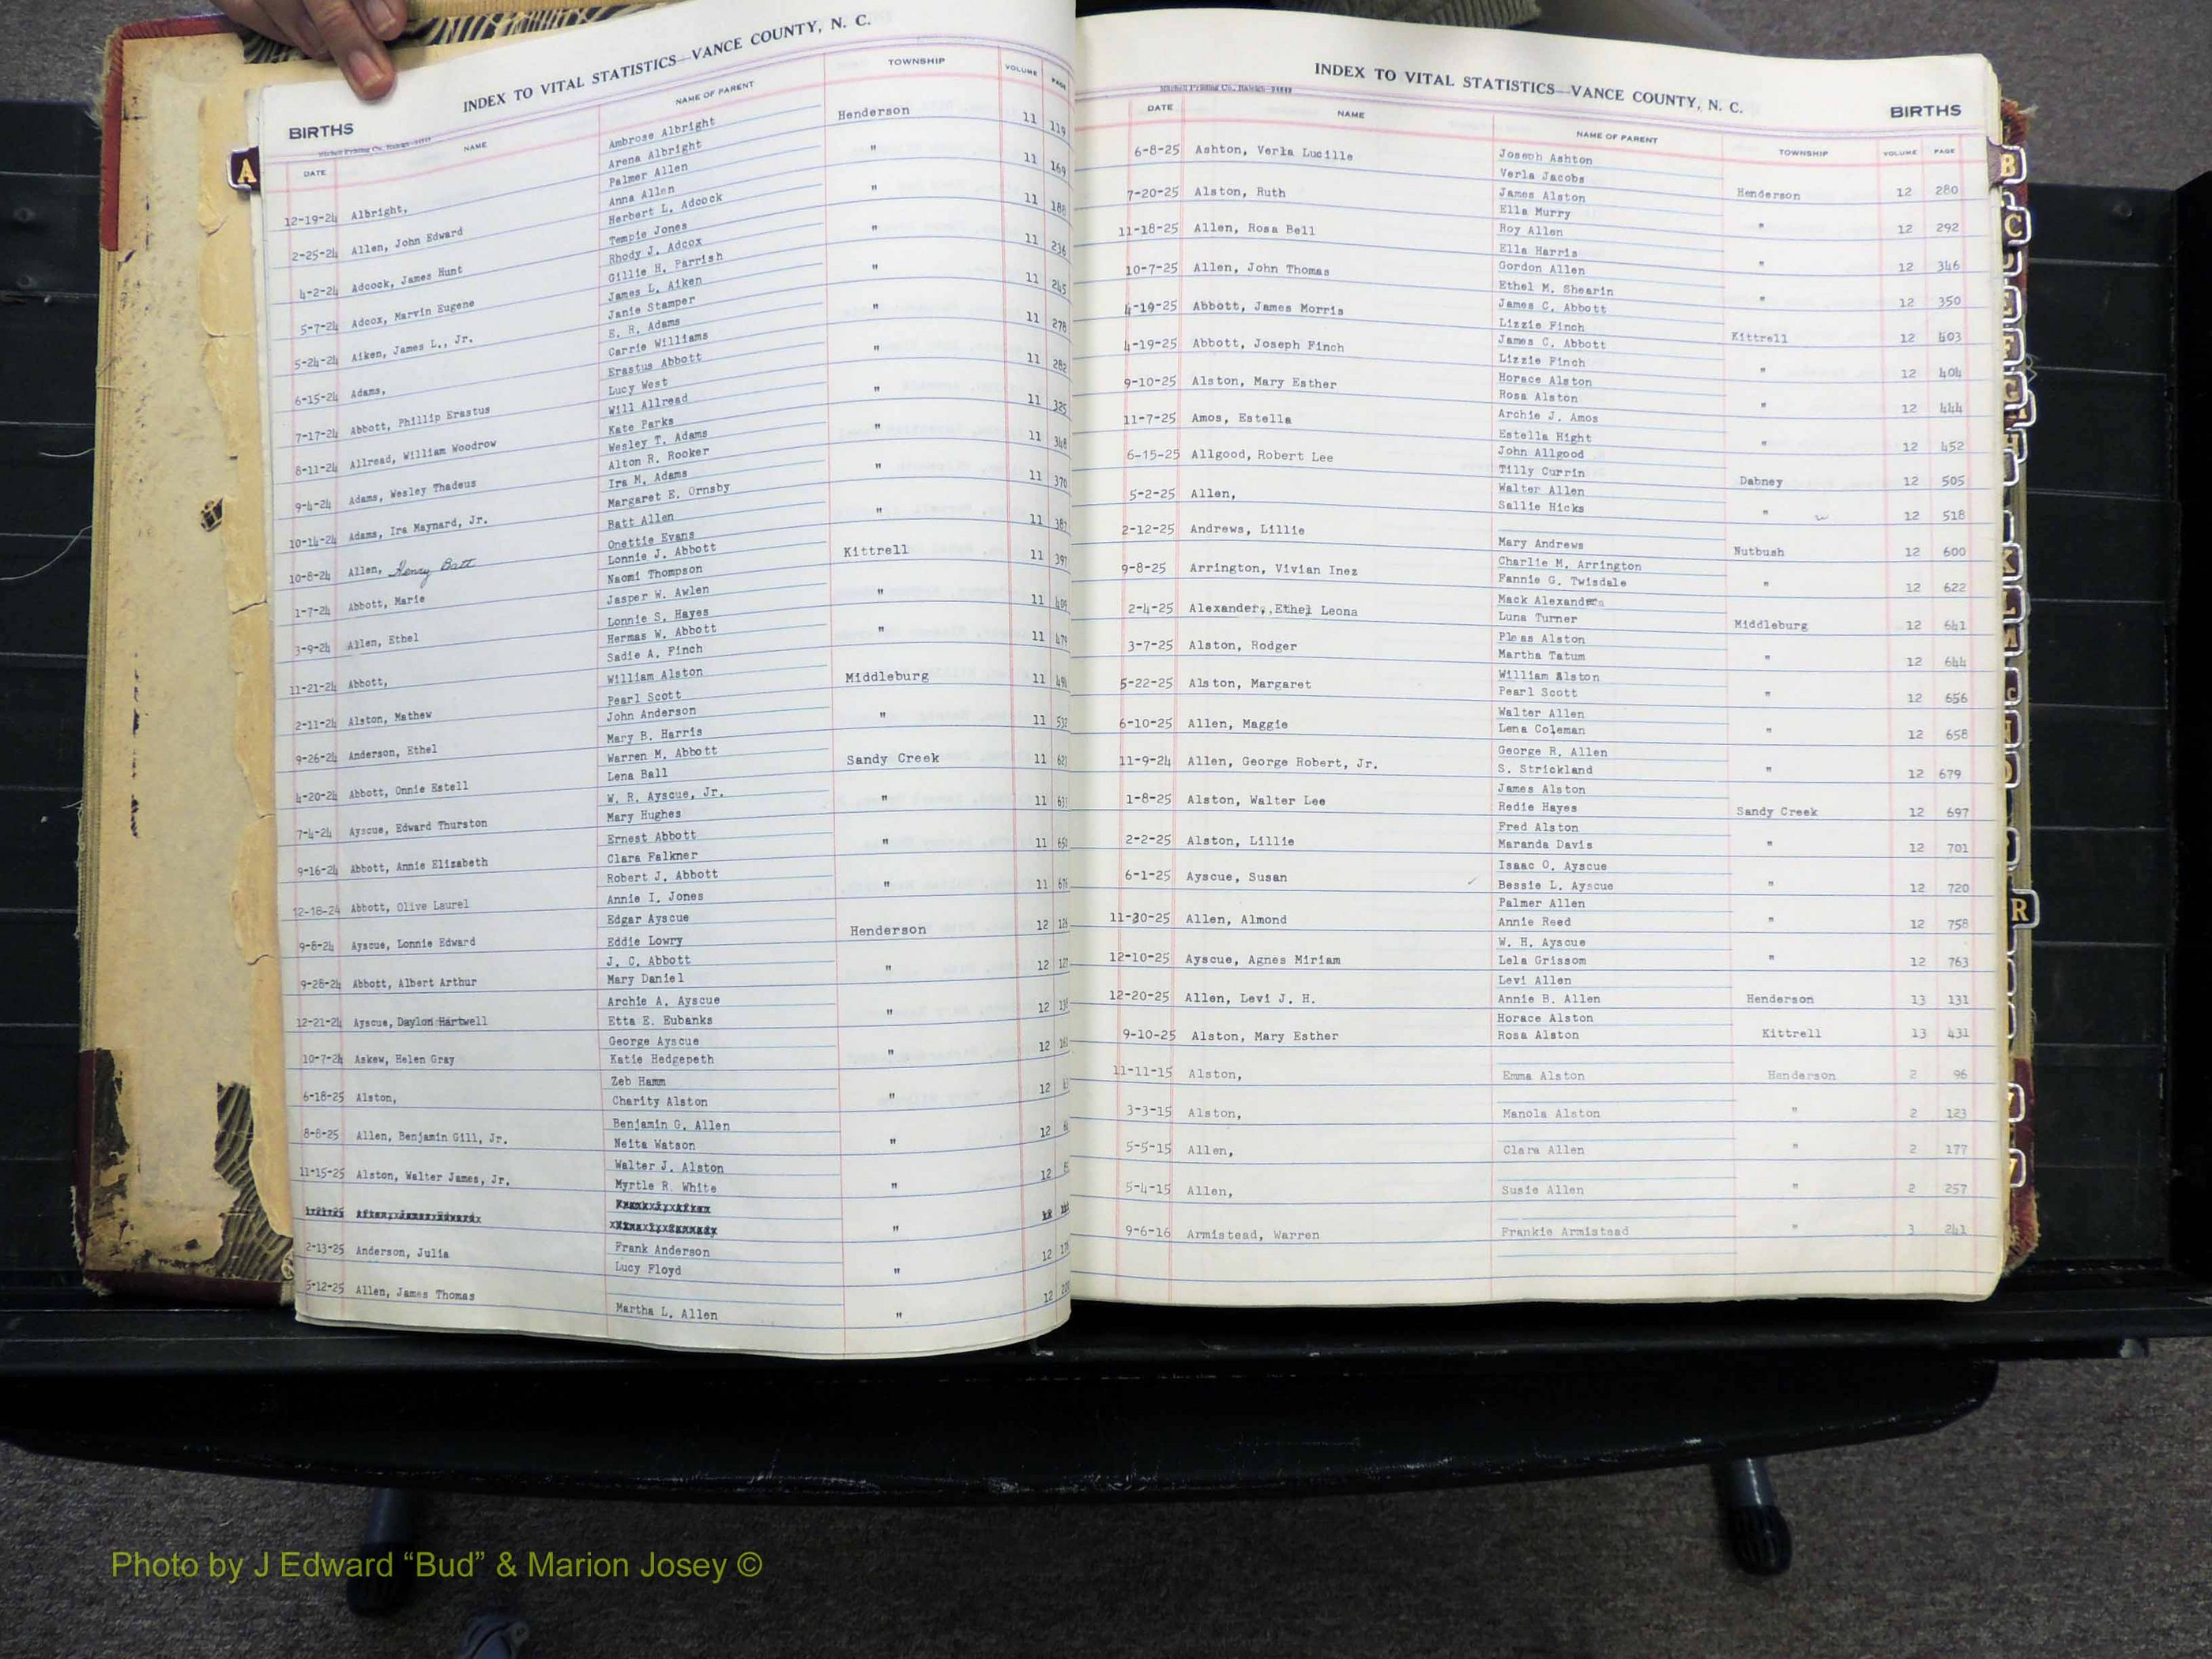 INDEX TO VITAL STATISTICS—VANCE COUNTY, N. C.
BIRTHS
DATE NAME NAME OF PARENT TOWNSHIP VOLUME PAGE
12-19-24 Albright, Ambrose Albright Henderson 11 119
Arena Albright
2-25-24 Allen, John Edward Palmer Allen " 11 169
Anna Allen
4-2-24 Adcock, James Hunt Herbert L. Adcock " 11 188
Tempie Jones
5-7-24 Adcox, Marvin Eugene Rhody J. Adcox " 11 236
Gillie H. Parrish
5-24-24 Aiken, James L., Jr. James L. Aiken " 11 245
Janie Stamper
6-15-24 Adams, E. R. Adams " 11 278
Carrie Williams
7-17-24 Abbott, Phillip Erastus Erastus Abbott " 11 282
Lucy West
8-11-24 Allread, William Woodrow Will Allread " 11 325
Kate Parks
9-4-24 Adams, Wesley Thadeus Wesley T. Adams " 11 348
Alton R. Rooker
10-14-24 Adams, Ira Maynard, Jr. Ira M. Adams " 11 370
Margaret E. Ornsby
10-8-24 Allen, Henry Batt Batt Allen " 11 387
Onettie Evans
1-7-24 Abbott, Marie Lonnie J. Abbott Kittrell 11 397
Naomi Thompson
3-9-24 Allen, Ethel Jasper W. Awlen " 11 405
Lonnie S. Hayes
11-21-24 Abbott, Hermas W. Abbott " 11 479
Sadie A. Finch
2-11-24 Alston, Mathew William Alston Middleburg 11
Pearl Scott
9-26-24 Anderson, Ethel John Anderson " 11
Mary B. Harris
4-20-24 Abbott, Onnie Estell Warren M. Abbott Sandy Creek 11
Lena Ball
7-4-24 Ayscue, Edward Thurston W. R. Ayscue, Jr. " 11
Mary Hughes
9-16-24 Abbott, Annie Elizabeth Ernest Abbott " 11
Clara Falkner
12-18-24 Abbott, Olive Laurel Robert J. Abbott " 11
Annie I. Jones
9-8-24 Ayscue, Lonnie Edward Edgar Ayscue Henderson 12
Eddie Lowry
9-28-24 Abbott, Albert Arthur J. C. Abbott " 12
Mary Daniel
12-21-24 Ayscue, Daylon Hartwell Archie A. Ayscue " 12
Etta E. Eubanks
10-7-24 Askew, Helen Gray George Ayscue " 12
Katie Hedgepeth
6-18-25 Alston, Zeb Hamm " 12
Charity Alston
8-8-25 Allen, Benjamin Gill, Jr. Benjamin G. Allen " 12
Neita Watson
11-15-25 Alston, Walter James, Jr. Walter J. Alston " 12
Myrtle R. White
"
2-13-25 Anderson, Julia Frank Anderson " 12
Lucy Floyd
5-12-25 Allen, James Thomas " 12
Martha L. Allen
A
INDEX TO VITAL STATISTICS—VANCE COUNTY, N. C.
BIRTHS
Mitchell Printing Co., Raleigh
DATE NAME NAME OF PARENT TOWNSHIP VOLUME PAGE
6-8-25 Ashton, Verla Lucille Joseph Ashton
Verla Jacobs Henderson 12 280
7-20-25 Alston, Ruth James Alston
Ella Murry " 12 292
11-18-25 Allen, Rosa Bell Roy Allen
Ella Harris " 12 346
10-7-25 Allen, John Thomas Gordon Allen
Ethel M. Shearin " 12 350
4-19-25 Abbott, James Morris James C. Abbott
Lizzie Finch Kittrell 12 403
4-19-25 Abbott, Joseph Finch James C. Abbott
Lizzie Finch " 12 404
9-10-25 Alston, Mary Esther Horace Alston
Rosa Alston " 12 444
11-7-25 Amos, Estella Archie J. Amos
Estella Hight " 12 452
6-15-25 Allgood, Robert Lee John Allgood
Tilly Currin Dabney 12 505
5-2-25 Allen, Walter Allen
Sallie Hicks " 12 518
2-12-25 Andrews, Lillie
Mary Andrews Nutbush 12 600
9-8-25 Arrington, Vivian Inez Charlie M. Arrington
Fannie G. Twisdale " 12 622
2-4-25 Alexander, Ethel Leona Mack Alexander
Luna Turner Middleburg 12 641
3-7-25 Alston, Rodger Pleas Alston
Martha Tatum " 12 644
5-22-25 Alston, Margaret William Alston
Pearl Scott " 12 656
6-10-25 Allen, Maggie Walter Allen
Lena Coleman " 12 658
11-9-24 Allen, George Robert, Jr. George R. Allen
S. Strickland " 12 679
1-8-25 Alston, Walter Lee James Alston
Redie Hayes Sandy Creek 12 697
2-2-25 Alston, Lillie Fred Alston
Maranda Davis " 12 701
6-1-25 Ayscue, Susan Isaac O. Ayscue
Bessie L. Ayscue " 12 720
11-30-25 Allen, Almond Palmer Allen
Annie Reed " 12 758
12-10-25 Ayscue, Agnes Miriam W. H. Ayscue
Lela Grissom " 12 763
12-20-25 Allen, Levi J. H. Levi Allen
Annie B. Allen Henderson 13 131
9-10-25 Alston, Mary Esther Horace Alston
Rosa Alston Kittrell 13 431
11-11-15 Alston, Emma Alston Henderson 2 96
3-3-15 Alston, Manola Alston " 2 123
5-5-15 Allen, Clara Allen " 2 177
5-4-15 Allen, Susie Allen " 2 257
9-6-16 Armistead, Warren Frankie Armistead " 3 241
B
C
F
G
H
K
L
R
Photo by J Edward “Bud” & Marion Josey ©